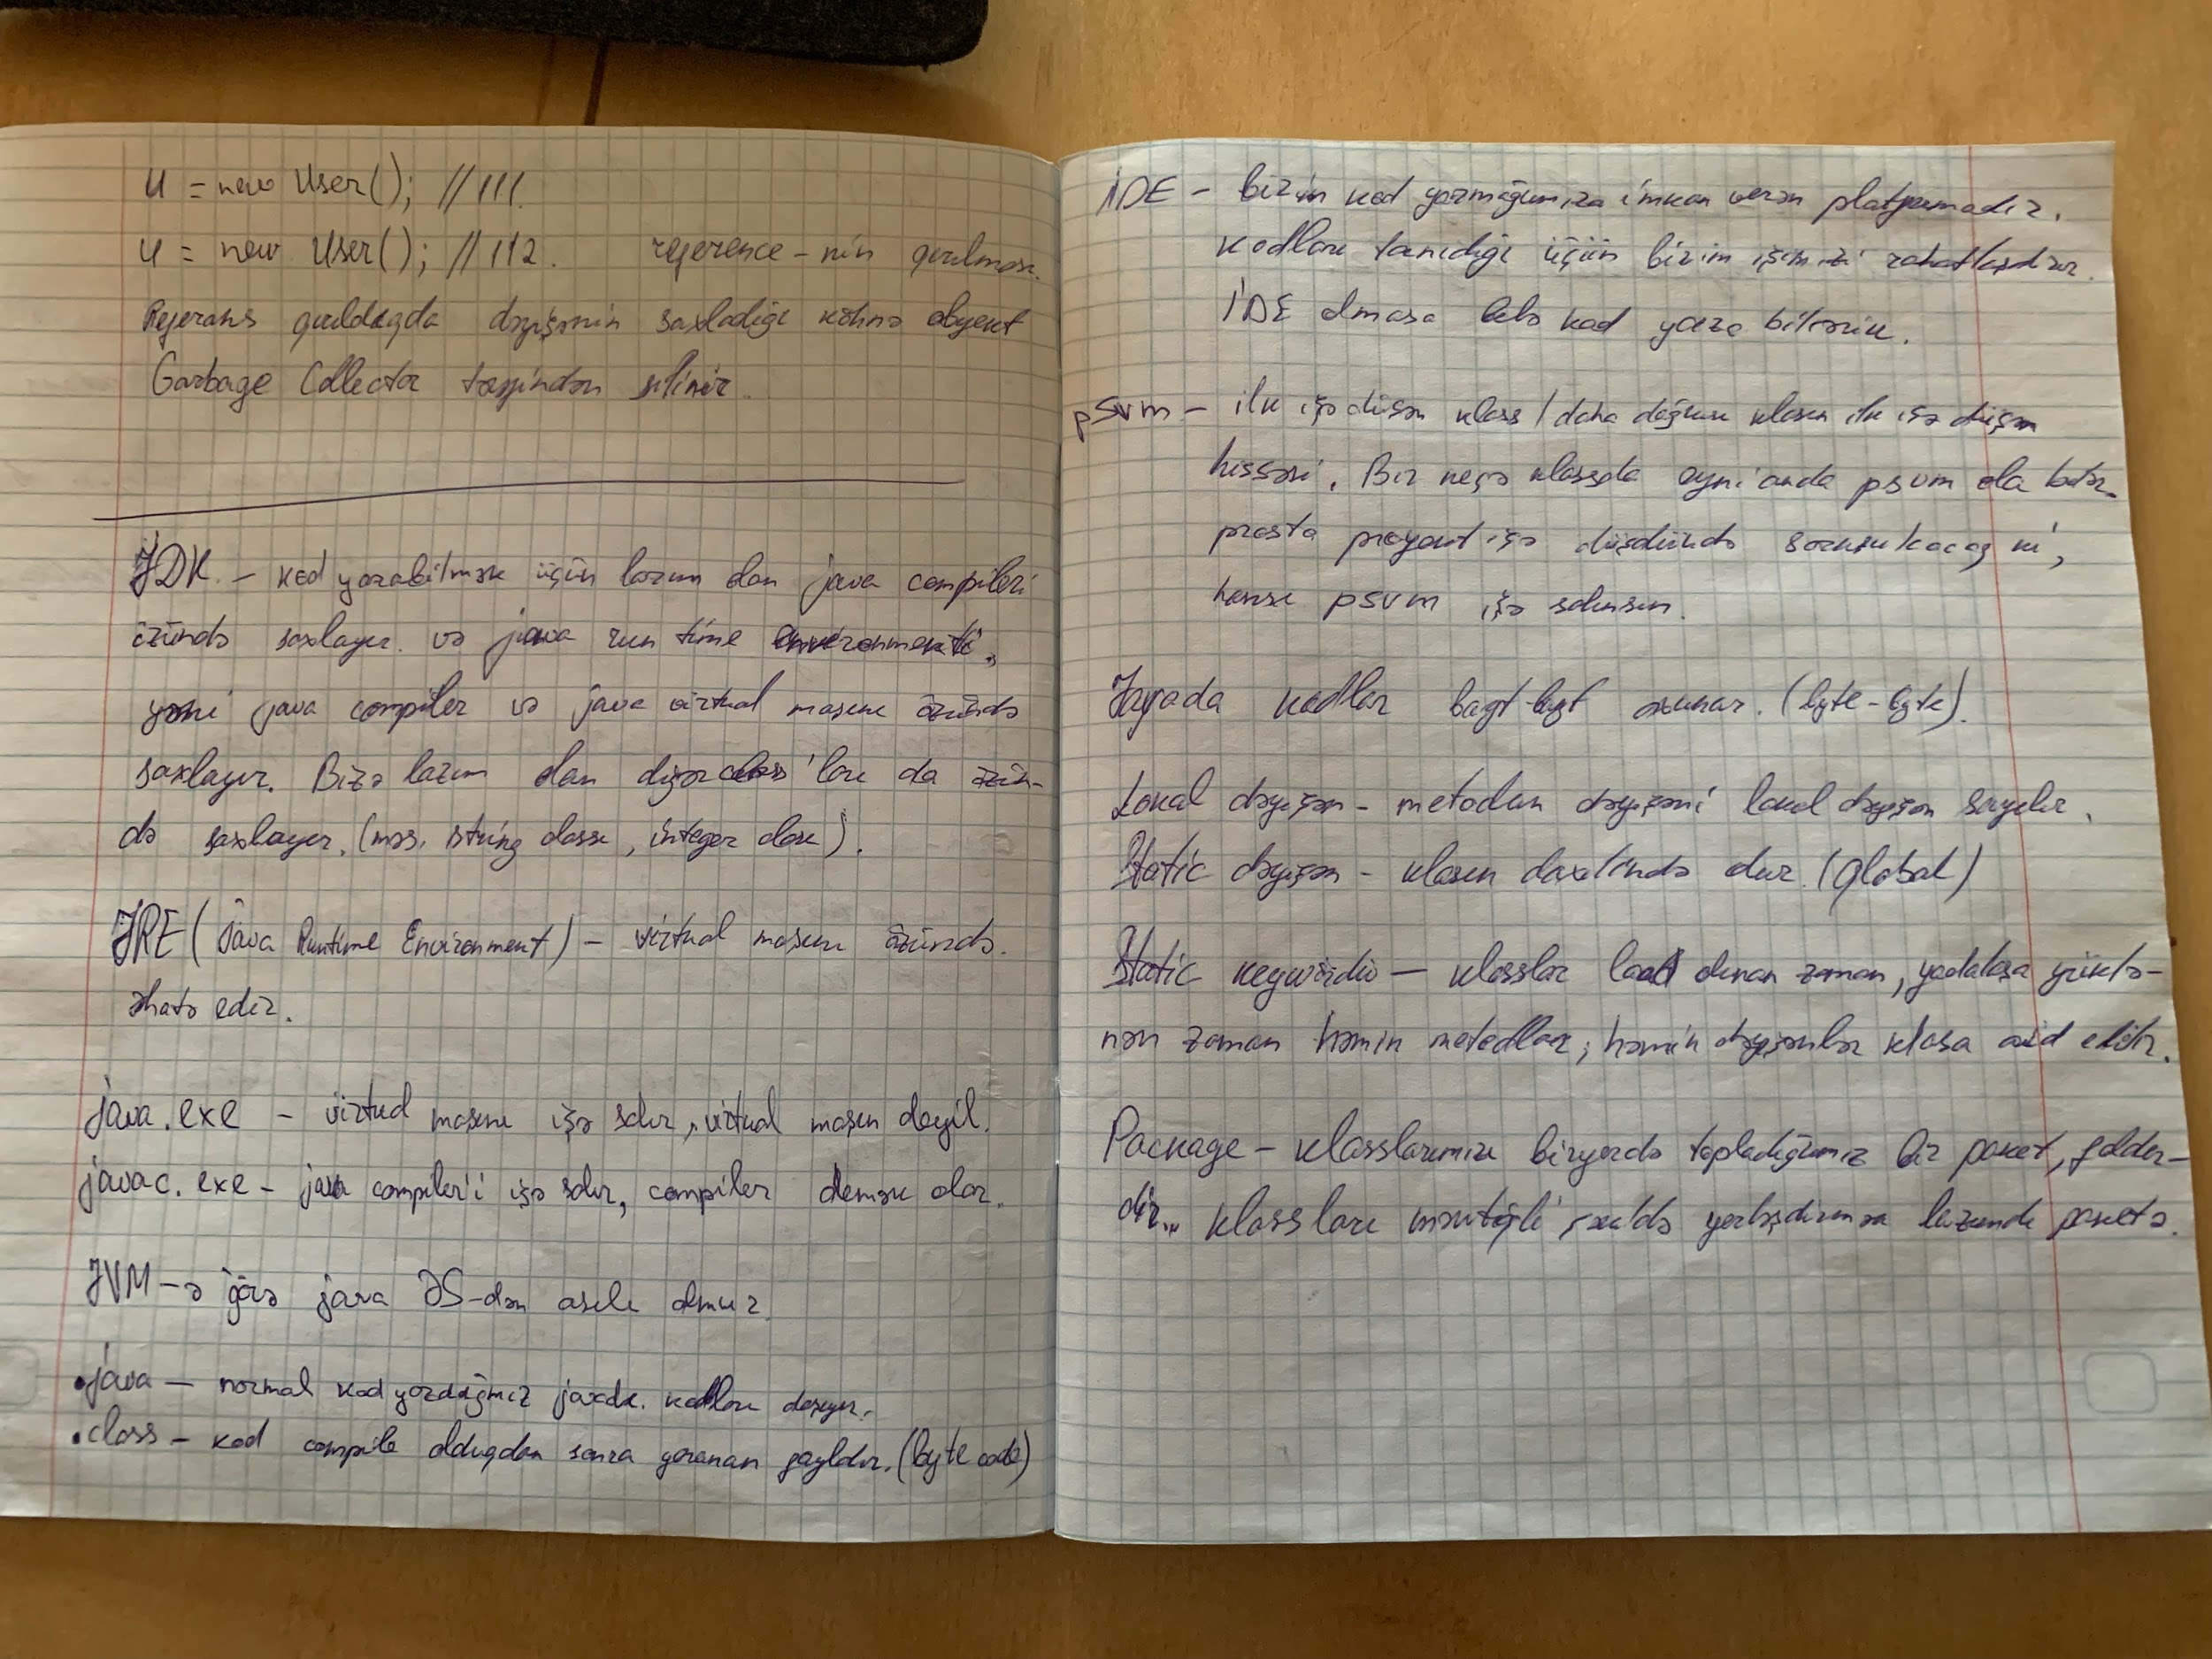 u = new User(); //111.
u = new User(); //112. reference-nin qırılması.
Referans qırıldıqda dəyişənin saxladığı köhnə obyekt
Garbage Collector tərəfindən silinir.
JDK - kod yaza bilmək üçün lazım olan java compileri
özündə saxlayır. və java run time environmenti,
yəni java compiler və java virtual maşını özündə
saxlayır. Bizə lazım olan digər class'ları da özün-
də saxlayır. (məs. string classı, integer clası).
JRE (Java Runtime Environment) - virtual maşını özündə.
əhatə edir.
java.exe - virtual maşını işə salır, virtual maşın deyil.
javac.exe - java compiler'i işə salır, compiler demək olar.
JVM-ə görə java ƏS-dən asılı olmur.
.java - normal kod yazdığımız javadı. kodları daşıyır.
.class - kod compile olduqdan sonra yaranan fayldır. (byte code)
İDE - bizim kod yazmağımıza imkan verən platformadır.
kodları tanıdığı üçün bizim işimizi rahatlaşdırır.
İDE olmasa belə kod yaza bilərik.
psvm - ilk işə düşən klass / daha doğrusu klasın ilk işə düşən
hissəsi. Bir neçə klassda eyni anda psvm ola bilər.
prosta proyekt işə düşdüündə soruşulacaq ki,
hansı psvm işə salınsın.
Yaxşıda kodlar bayt-bayt oxunar. (byte-byte).
Lokal dəyişən - metodun dəyişəni lokal dəyişən sayılır.
Static dəyişən - klasın daxilində olur. (global)
Static keywördü - klasslar load olunan zaman, yaddaşa yüklə-
nən zaman həmin metodlar, həmin dəyişənlər klasa aid edilir.
Package - klasslarımızı bir yerdə topladığımız bir paket, folder-
dir... klassları məntiqli şəkildə yerləşdirmək lazımdı paketə.